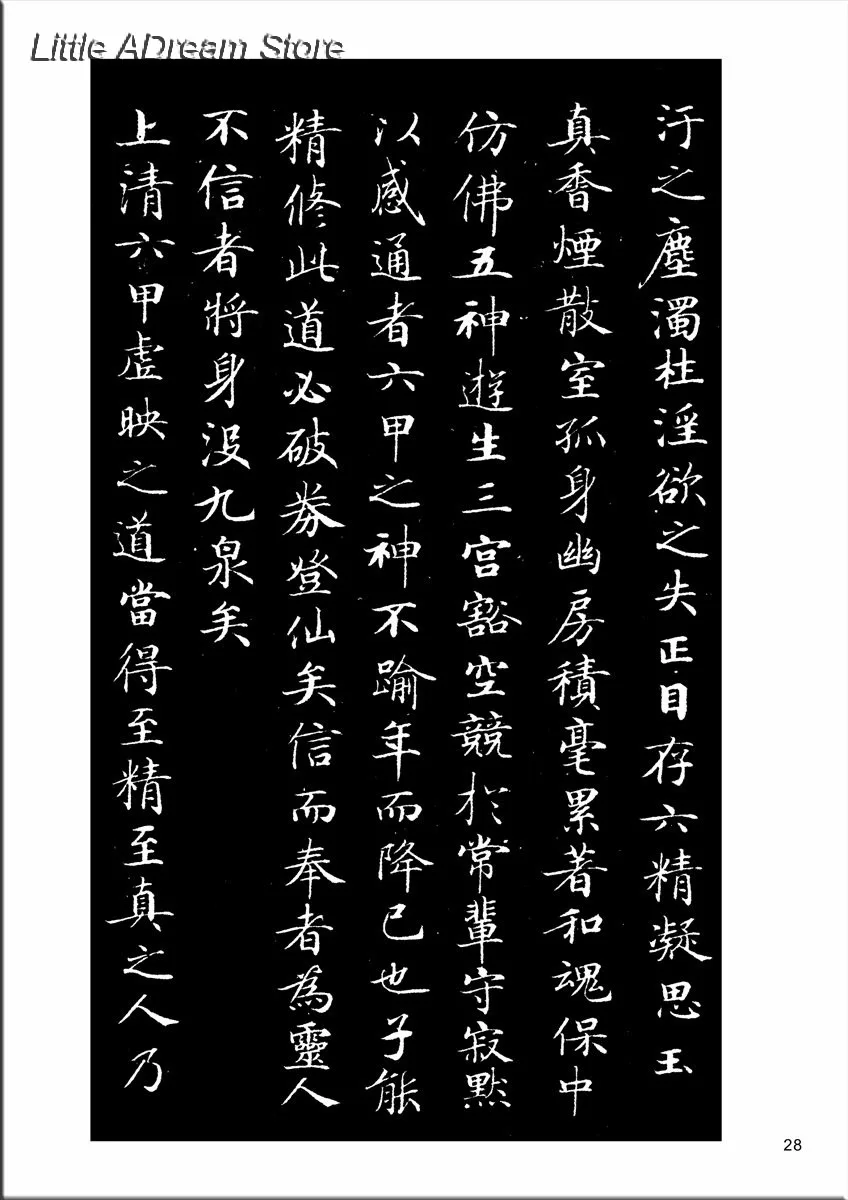 Little ADream Store
汙之塵濁杜淫欲之失正目存六精凝思玉
真香煙散室孤身幽房積毫累著和魂保中
仿佛五神遊生三宮豁空競於常輩守寂默
以感通者六甲之神不踰年而降已也子能
精修此道必破券登仙矣信而奉者為靈人
不信者將身沒九泉矣
上清六甲虛映之道當得至精至真之人乃
28